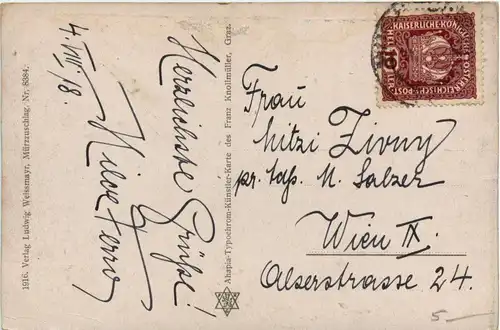 4. VIII. 18.
Herzlichste Grüße!
1916. Verlag Ludwig Weissmayr, Mürzzuschlag. Nr. 8384.
Ahapia-Typochrom-Künstler-Karte des Franz Knollmüller, Graz.
KAISERLICHE KÖNIGLICHE ÖSTERREICHISCHE POST
Frau
Mitzi Zivny
pr. Adr. M. Salzer
Wien IX.
Alserstrasse 24.
5—